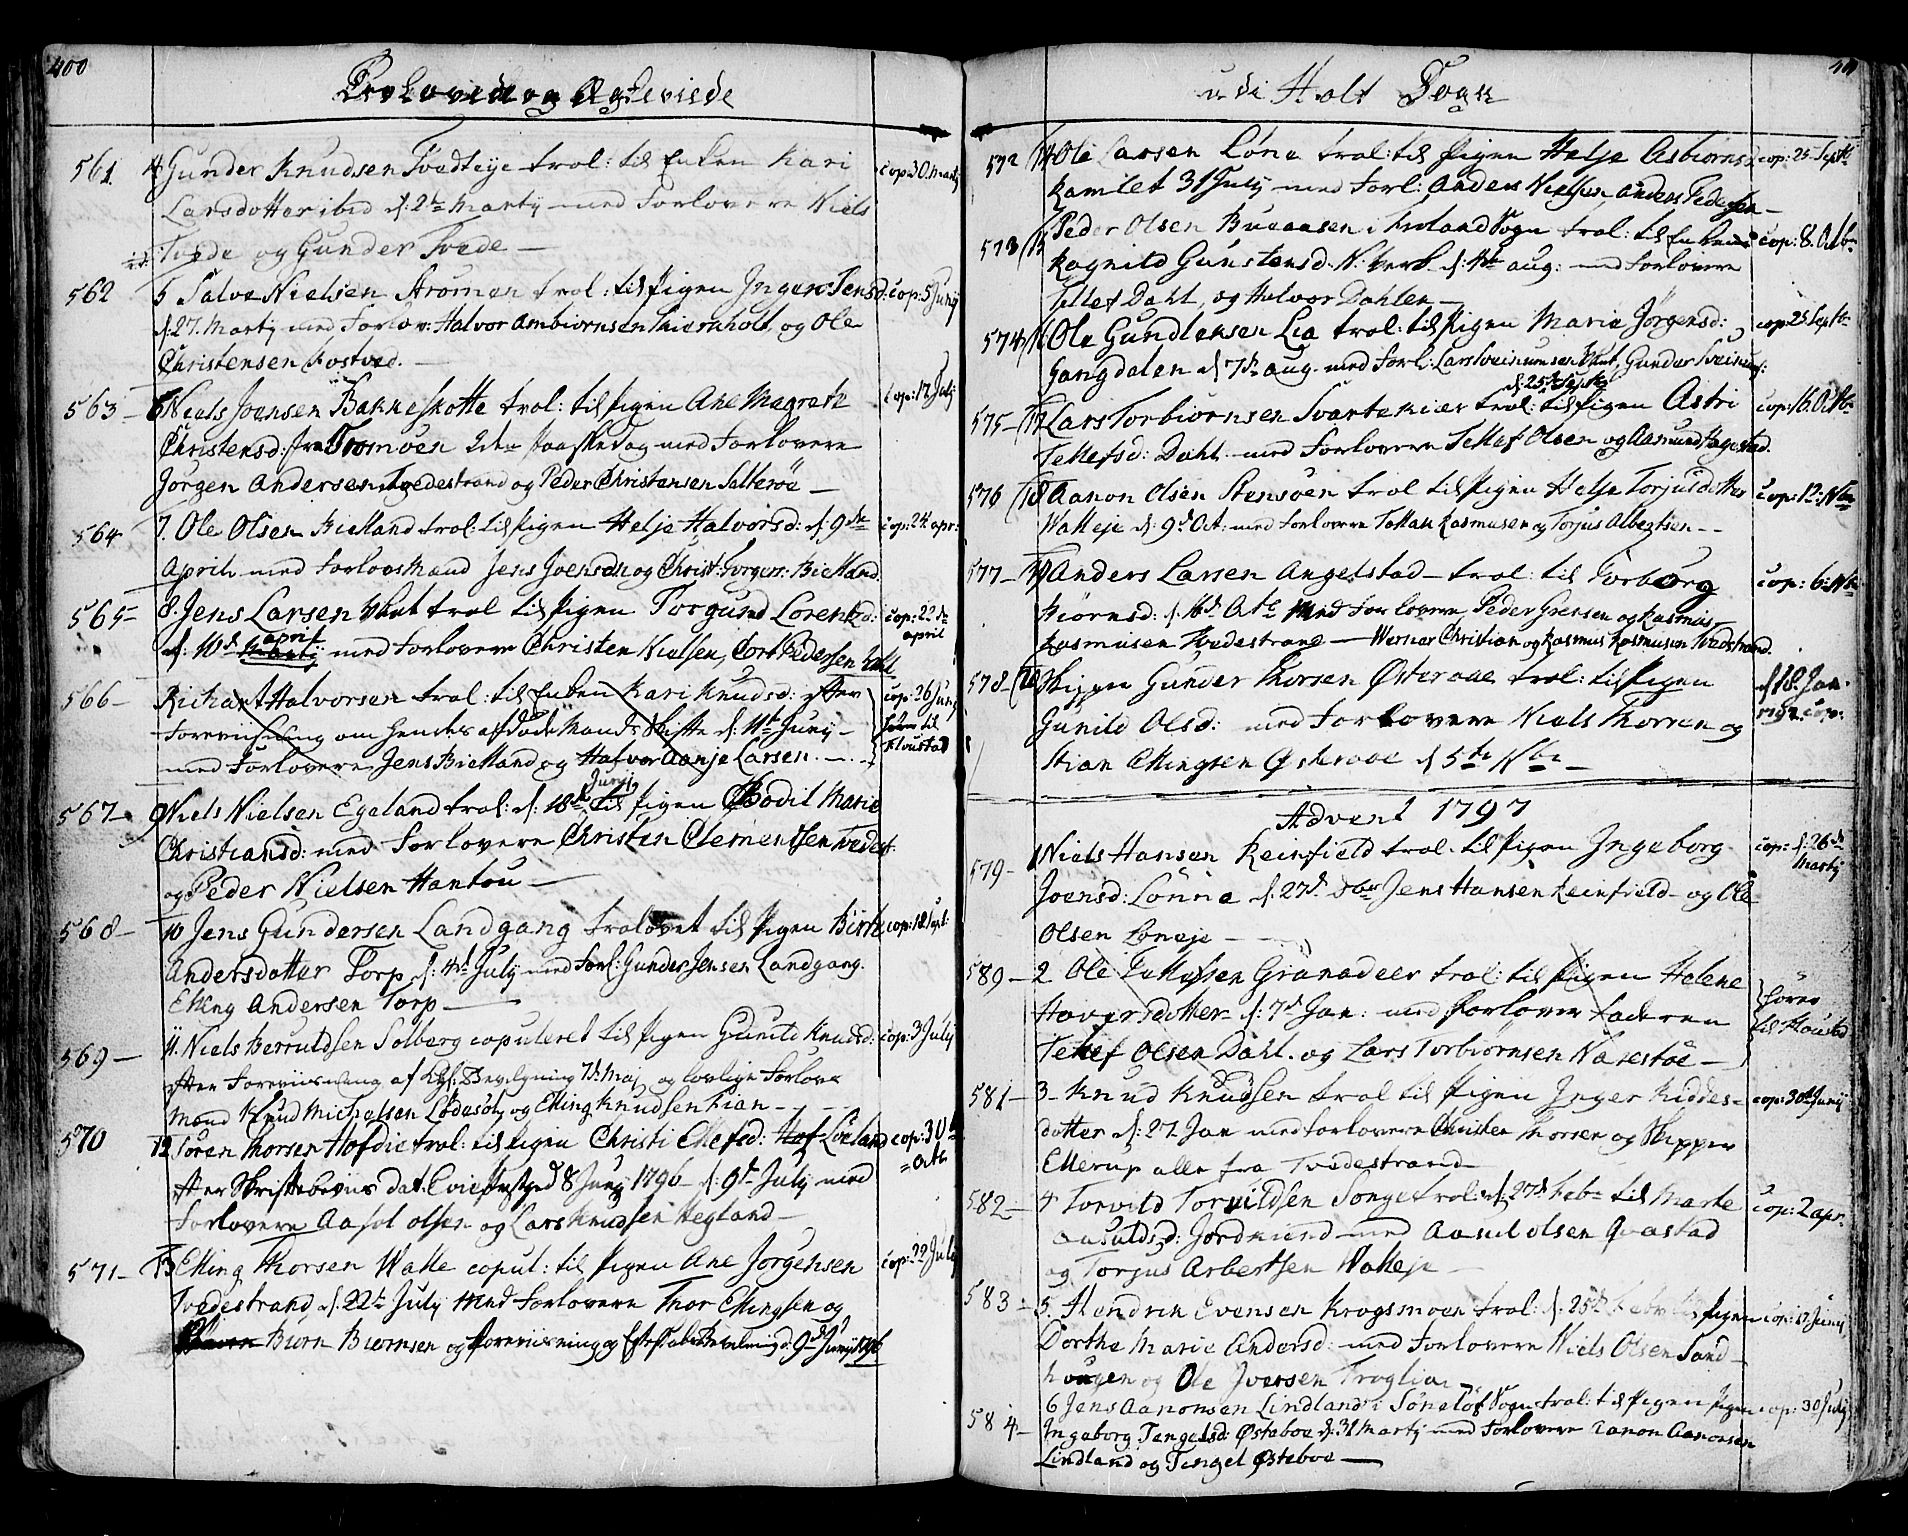 400
Trolovede og Ægteviede
561. 4 Gunder Knudsen Tvedteye trol: til Enken Kari cop: 30. Martj
Larsdotter ibid d: 2de Martj med Forlovere Niels
Tvede og Gunder Tvede —
562 5 Salve Nielsen Strømen trol: til Pigen Inger Jensd: cop: 5 Junij
d: 27. Martj med Forlov: Halvor Ambiørnsen Kiernholt, og Ole
Christensen Kostved. —
563 — 6 Niels Joensen Bakkeskotte trol: til Pigen Ane Magrete cop: 17. Julj
Christensd: fra Tromøen 2den Paaskedag med Forlovere
Jørgen Andersen Tvedestrand og Peder Christensen Salterøe —
564 7. Ole Olsen Bielland trol: til Pigen Helje Halvorsd: d: 9de cop: 24 apr:
April med Forlovsmænd Jens Joensen og Christ: Torgers: Bielland.
565 — 8. Jens Larsen trol til Pigen Torgund Lorentzd: cop: 22de april
d: 10de Martj april med Forlovere Christen Nielsen, Cort Pedersen
566 — Richart Halvorsen trol: til Enken Kari Knudsd: efter cop: 26 Junij
Foreviisning om hendes afdøde Mands Skifte d: 11te Junij — hører til
med Forlovere Jens Bielland og Halvor Aanje Larsen. — Flaustad
567 — 9 Niels Nielsen Egeland trol: d: 18de Junij til Pigen Bodil Marie
Christiansd: med Forlovere Christen Clementsen Tvedest:
og Peder Nielsen Hantou —
568 — 10 Jens Gundersen Landgang trolovet til Pigen Birte cop: 18 Sept:
Andersdotter Torp d: 4de Julij med Forl: Gunder Jensen Landgang.
Elling Andersen Torp —
569 — 11. Niels Berruldsen Solberg copuleret til Pigen Gunild Knudsd: cop: 3 Julij
efter Foreviisning af Kgl: Bevilgning 7de Maj og lovlige Forlovs
Mænd Knud Michelsen Lødesøl, og Elling Knudsen Fian —
570 12 Søren Thorsen Hofdie trol: til Pigen Christi Ellefsd: Løeland cop: 30te Octr
efter Skriftebeviis dat. Evie Præstgd 8 Junij 1796 — d: 9de Julij med
Forlovere Aasol Olsen og Lars Knudsen Hegland —
571 — 13 Elling Thorsen Walle copul: til Pigen Ane Jørgensen cop: 22 Julij
Tvedestrand d: 22de Julij med Forlovere Thor Ellingsen og
Biørn Biørnsen og Foreviisning og Bevilning d: 9de Junij 1796
udi Holt Sogn
572 14 Ole Larsen Løne trol: til Pigen Helje Asbiørnsd: cop: 25. Septbr
Kamlet 31 Julij med Forl: Anders Nielsen, Anders Pedersen —
573 15 Peder Olsen Bueaasen i Froland Sogn trol: til Enken cop: 8. Octbr
Ragnild Gunstensd: N. Verk. d: aug: med Forlovere
Tellef Dahl, og Halvor Dahlen —
574 16 Ole Gundlaksen Lia trol: til Pigen Marie Jørgensd: cop 25 Septbr
Gangdalen d 7de aug. med Forl: Lars Sveinumsen, Gunder Sveinums:
575 — 17 Lars Torbiørnsen Svartekiær trol: d: 25de Septbr til Pigen Astri cop: 16. Octbr
Tellefsd: Dahl. med Forlovere Tellef Olsen og Aasmund Hagestad.
576 18 Aanon Olsen Stensøen trol til Pigen Helje Torjusdotter cop: 12: Nbr
Walleje d: 9de Oct: med Forlovere Tallak Rasmusen og Torjus Albertsen —
577 — 19 Anders Larsen Angelstad — trol: til Torborg cop: 6: Nbr
Biørnsd: d: 16de Octr med Forlovere Peder Grersen og Rasmus
Rasmusen Tvedestrand — Werner Christian og Rasmus Rasmusen Tvedstrand.
578 — 20 Skipper Gunder Thorsen Østeraae trol: til Pigen d 18. Jan.
Gunild Olsd: med Forlovere Niels Thorsen og 1797. cop:
Stian Ellingsen Østeraae d 5te Nbr —
Advent 1797
579 — 1 Niels Hansen Reinfield trol. til Pigen Ingeborg cop: d: 26de Martj
Joensd: Lønne d: 27de Jens Hansen Reinfield — og Ole
Olsen Løneje —
589 — 2 Ole Tellefsen Granadeer trol: til Pigen Helene hører
Haversdotter d: 7de Jan: med Forlover Faderen til Flausta
Tellef Olsen Dahl. og Lars Torbiørnsen Narestøe —
581 — 3 — Knud Knudsen trol til Pigen Inger Kiddes- cop: 30te Junij
dotter d: 27. Jan med Forlovere Christen Thorsen og Skipper
Ellerup alle fra Tvedestrand
582 — 4 Torvild Torvildsen Songe trol: d: 27de Febr til Marte cop: 2 apr.
Aasuldsd: Jordkiend med Aasul Olsen Qvastad
og Torjus Arbertsen Walleje —
583 — 5. Hendrik Evensen Krogsmoen trol: d: 25de Febr til Pigen cop: 17 Junij
Dorthe Marie Andersd: med Forlovere Niels Olsen Sand-
hougen og Ole Iversen Troglia —
584 — 6 Jens Aanonsen Lindland i Søneløf Sogn trol: til Pigen Pigen cop: 30 Julij
Ingeborg Tengelsd: Østeboe d: 31 Martj med Forlovere Aanon Aanonsen
Lindland og Tengel Østeboe —